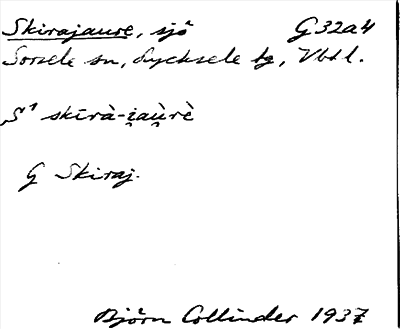 Skirajaure, sjö G32a4
Sorsele sn, Lycksele tg, Vbtl.
S¹ skīrà-i̯au̯rè
G Skiraj.
Björn Collinder 1937